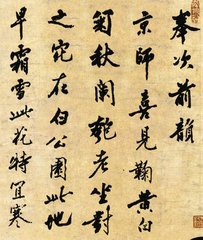 奉次前韻
京師喜見鞠黄白
菊秋闌老坐對
之宛在白公園此地
早霜雪此花特宜寒